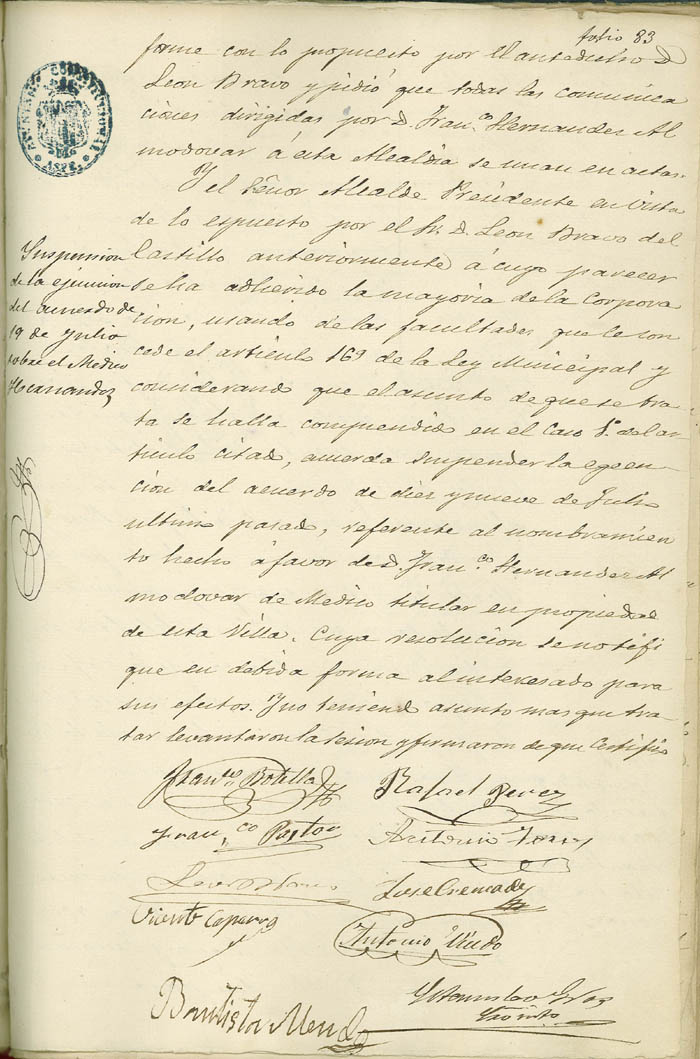 folio 83
forme con lo propuesto por el antedicho D.
Leon Bravo y pidió que todas las comunica
ciones dirigidas por D. Fran.co Hernandez Al
modovar á esta Alcaldia se unan en actas.
Y el Señor Alcalde Presidente en vista
de lo espuesto por el Sr. D. Leon Bravo del
Castillo anteriormente á cuyo parecer
se ha adherido la mayoria de la Corpora
cion, usando de las facultades que le con
cede el articulo 169 de la Ley Municipal y
considerando que el asunto de que se tra-
ta se halla comprendido en el Caso 1.º del ar
ticulo citado, acuerda suspender la egecu-
cion del acuerdo de diez y nueve de Julio
ultimo pasado, referente al nombramien
to hecho á favor de D. Fran.co Hernandez Al
modovar de Medico titular en propiedad
de esta Villa. Cuya resolucion se notifi
que en debida forma al interesado para
sus efectos. Y no teniendo asunto mas que tra-
tar levantaron la sesion y firmaron de que certifico
Suspension
de la ejecucion
del acuerdo de
19 de Julio
sobre el Medico
Hernandez
AYUNTAMIENTO CONSTITUCIONAL
ASPE
Fran.co Botella
Rafael Perez
Fran.co Pastor
Antonio
Leon Bravo
Jose Cremades
Vicente Caparros
Antonio
Bautista